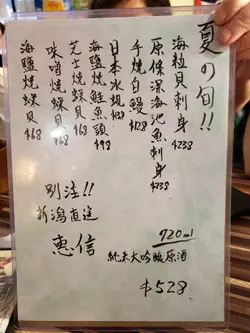 夏の旬!!
海粒貝刺身 $238
原條深海池魚刺身 $238
手燒白鱔 $128
日本水蜆 $138
海鹽燒鮭魚頭 $98
芝士燒蜆貝 $68
味噌燒蜆貝 $68
海鹽燒蜆貝 $68
別注!!
新潟直送
惠信
720ml
純米大吟醸原酒
$528